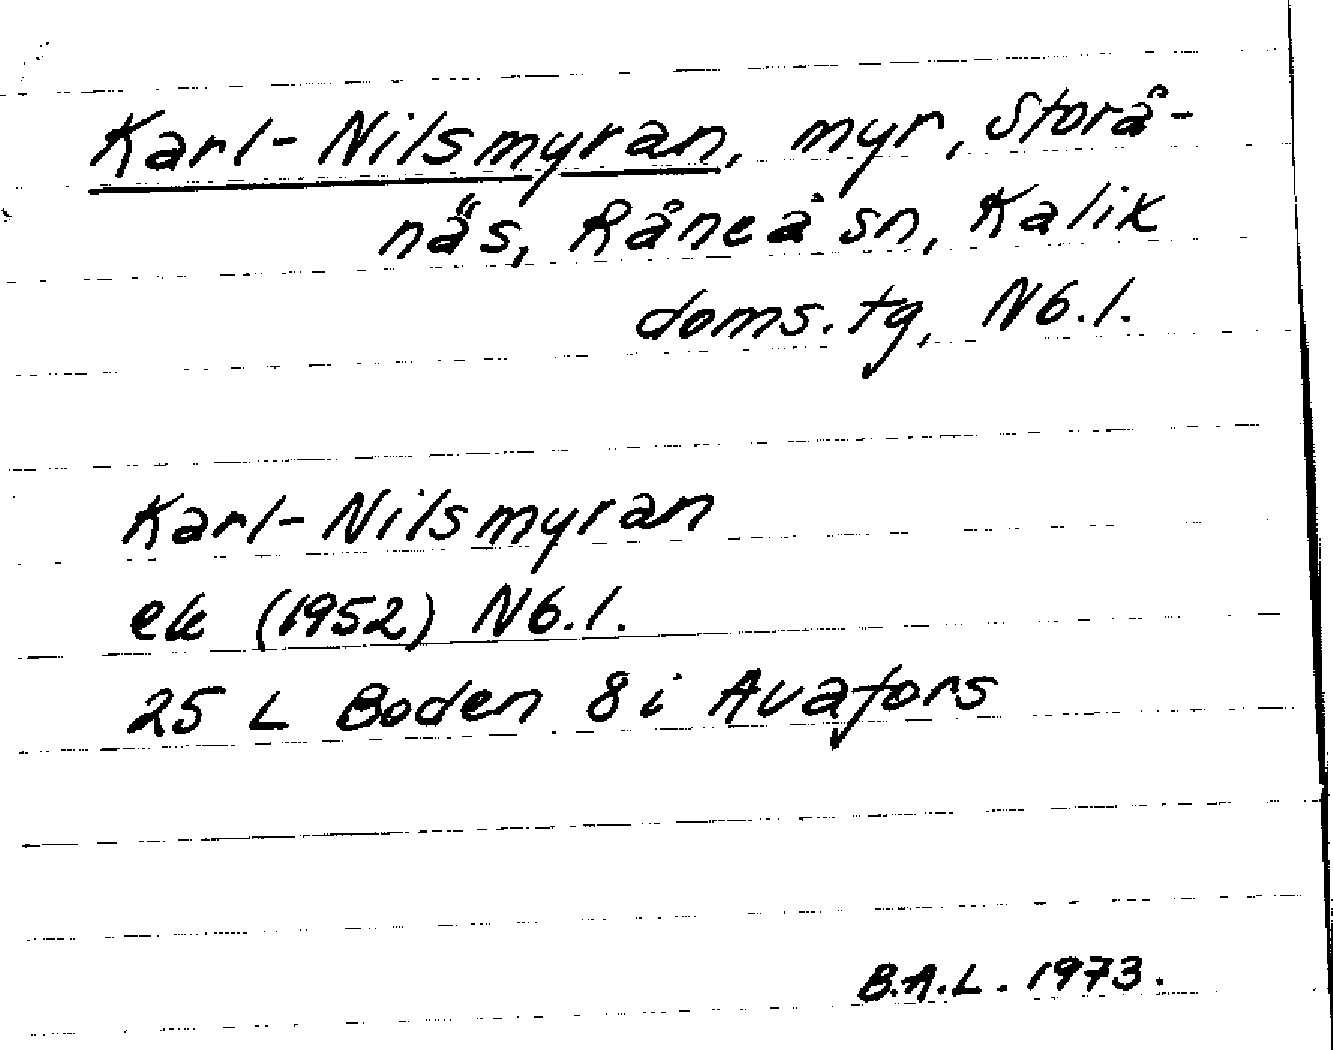 Karl-Nilsmyran, myr, Storå-
näs, Råneå sn, Kalix
doms. tg, Nb. l.
Karl-Nilsmyran
ek (1952) Nb. l.
25 L Boden 8 i Avafors
B.A.L. 1973.